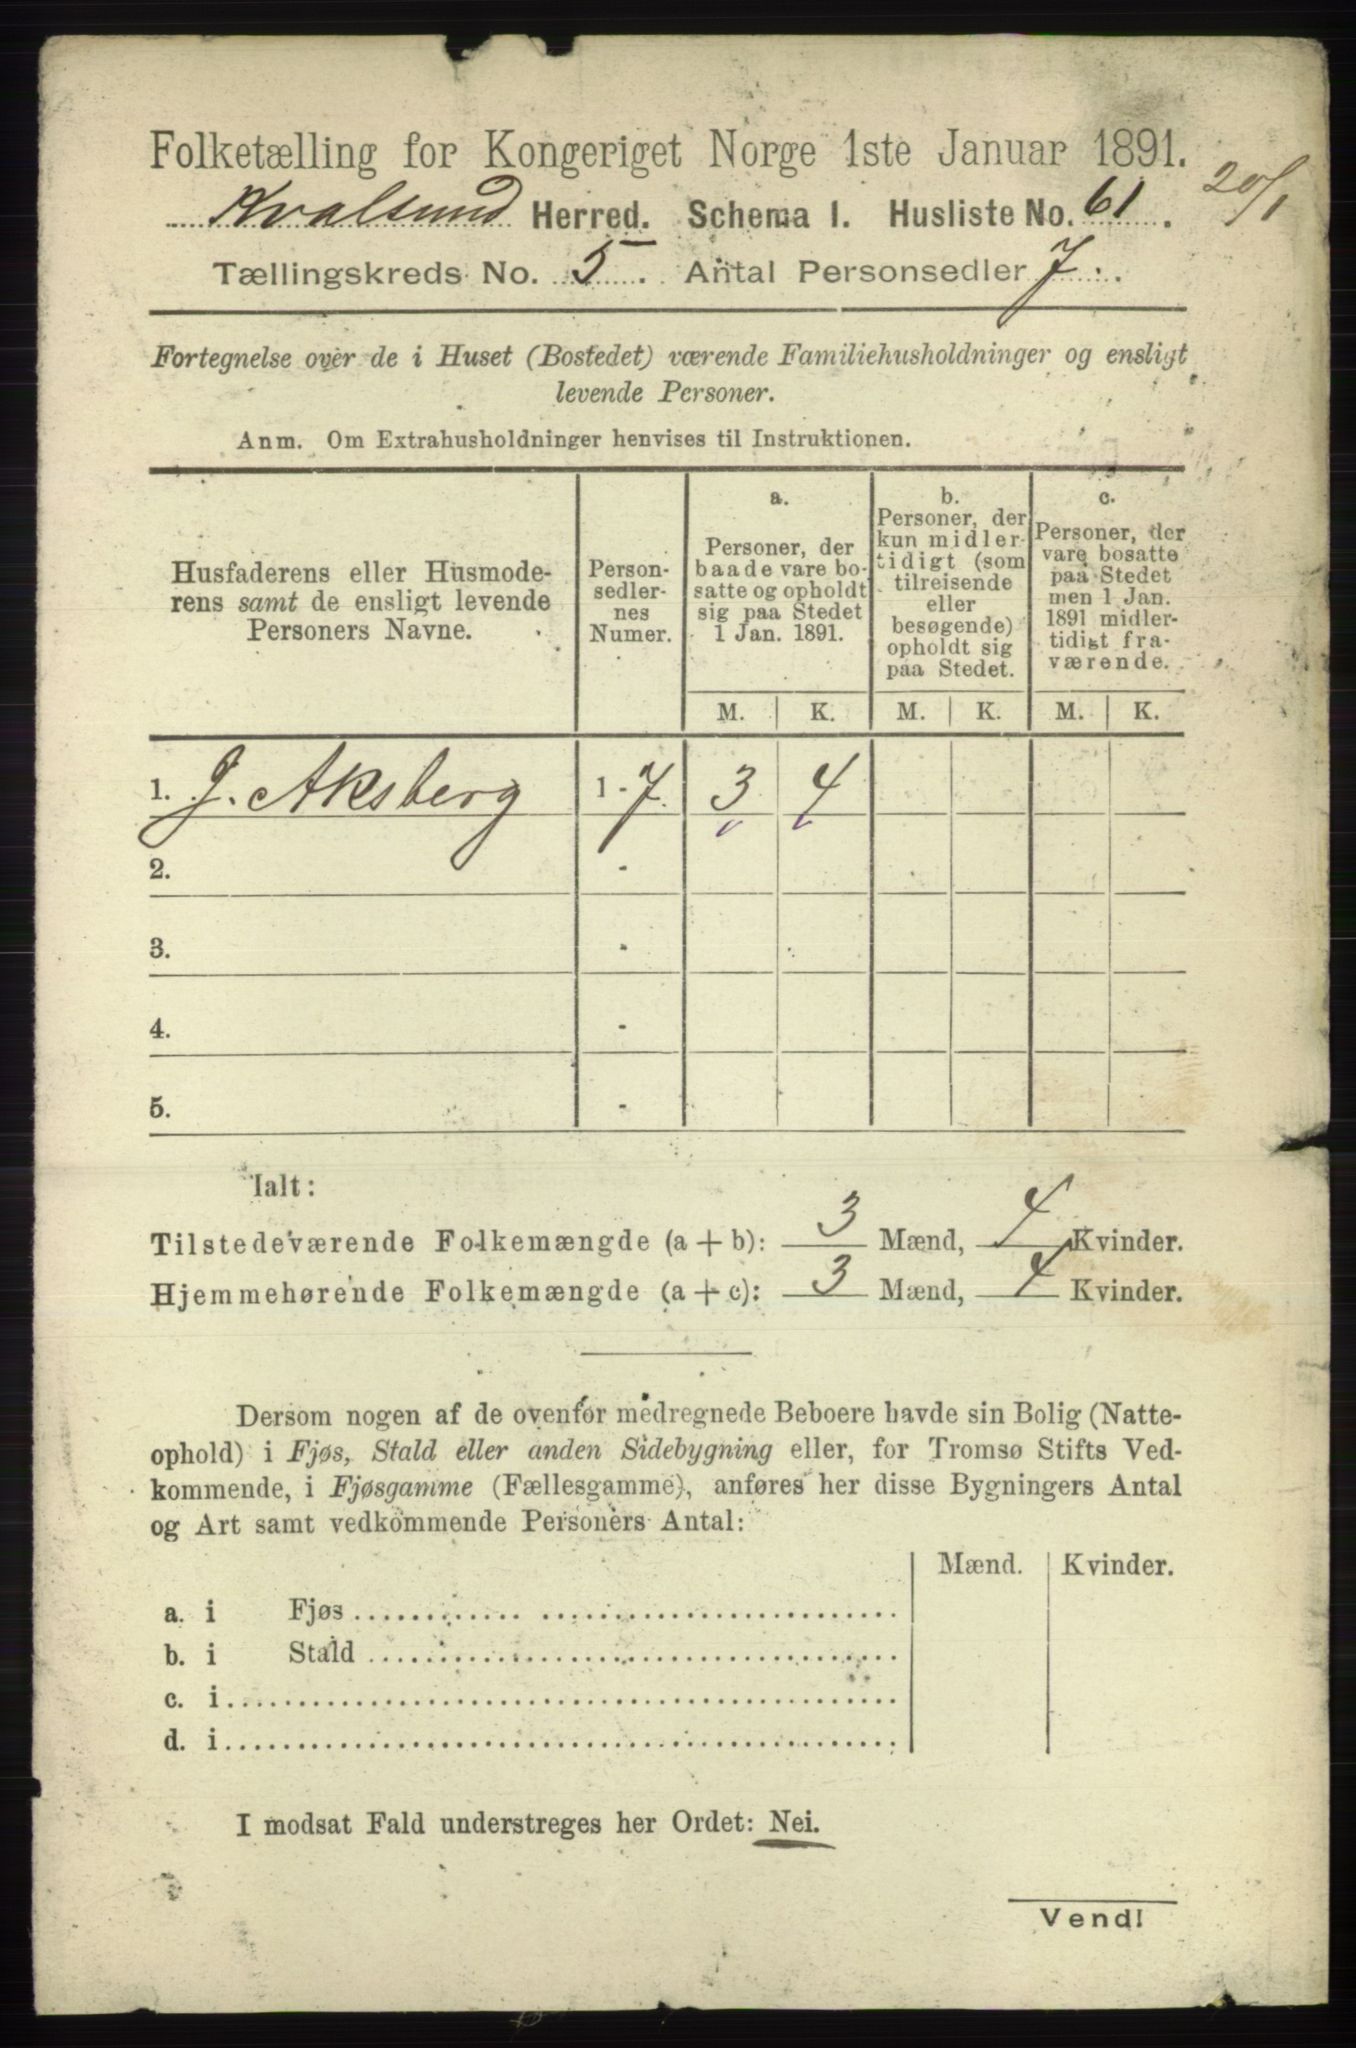 Folketælling for Kongeriget Norge 1ste Januar 1891.
20/1
Kvalsund Herred. Schema 1. Husliste No. 61.
Tællingskreds No. 5. Antal Personsedler 7.
Fortegnelse over de i Huset (Bostedet) værende Familiehusholdninger og ensligt
levende Personer.
Anm. Om Extrahusholdninger henvises til Instruktionen.
Husfaderens eller Husmode-
rens samt de ensligt levende
Personers Navne.
Person-
sedler-
nes
Numer.
a.
Personer, der
baade vare bo-
satte og opholdt
sig paa Stedet
1 Jan. 1891.
b.
Personer, der
kun midler-
tidigt (som
tilreisende
eller
besøgende)
opholdt sig
paa Stedet.
c.
Personer, der
vare bosatte
paa Stedet
men 1 Jan.
1891 midler-
tidigt fra-
værende.
M. K. M. K. M. K.
1. J. Aksberg 1 - 7 3 4
2. -
3. -
4. -
5. -
Ialt:
Tilstedeværende Folkemængde (a + b): 3 Mænd, 4 Kvinder.
Hjemmehørende Folkemængde (a + c): 3 Mænd, 4 Kvinder.
Dersom nogen af de ovenfor medregnede Beboere havde sin Bolig (Natte-
ophold) i Fjøs, Stald eller anden Sidebygning eller, for Tromsø Stifts Ved-
kommende, i Fjøsgamme (Fællesgamme), anføres her disse Bygningers Antal
og Art samt vedkommende Personers Antal:
Mænd. Kvinder.
a. i Fjøs
b. i Stald
c. i
d. i
I modsat Fald understreges her Ordet: Nei.
Vend!